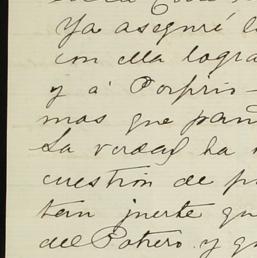 Ya aseguré l
con ella logra
y á Porfirio
mas que pan
La verdad ha
cuestion de p
tan fuerte qu
del Potrero. y qu